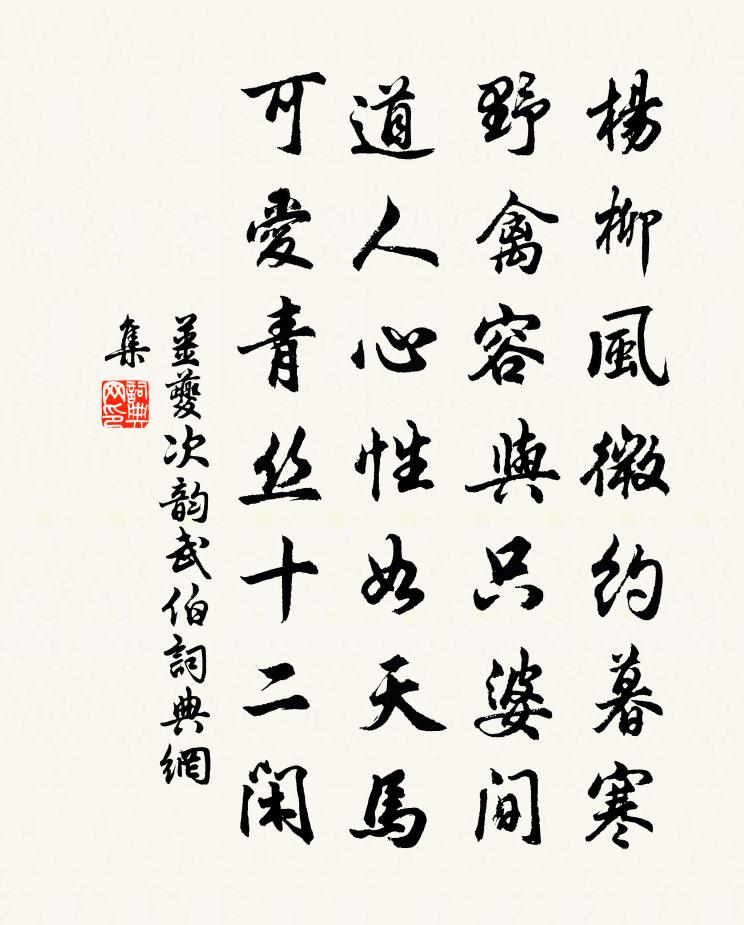 楊柳風微約暮寒
野禽容與只婆間
道人心性如天馬
可愛青丝十二閑
薑夔次韵武伯詞典網
集
詞典
网印